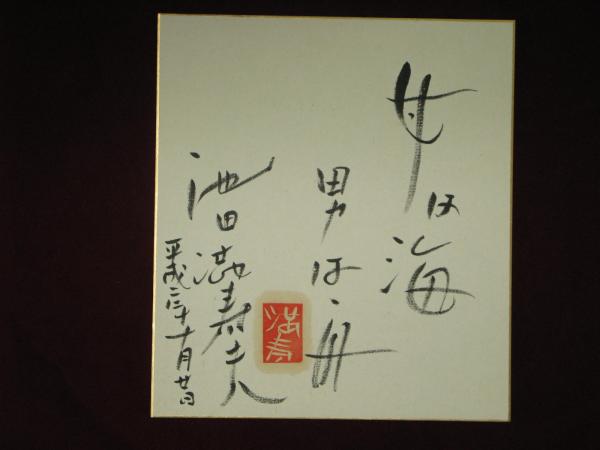 女は海
男は舟
池田満寿夫
平成二年十月廿日
満寿